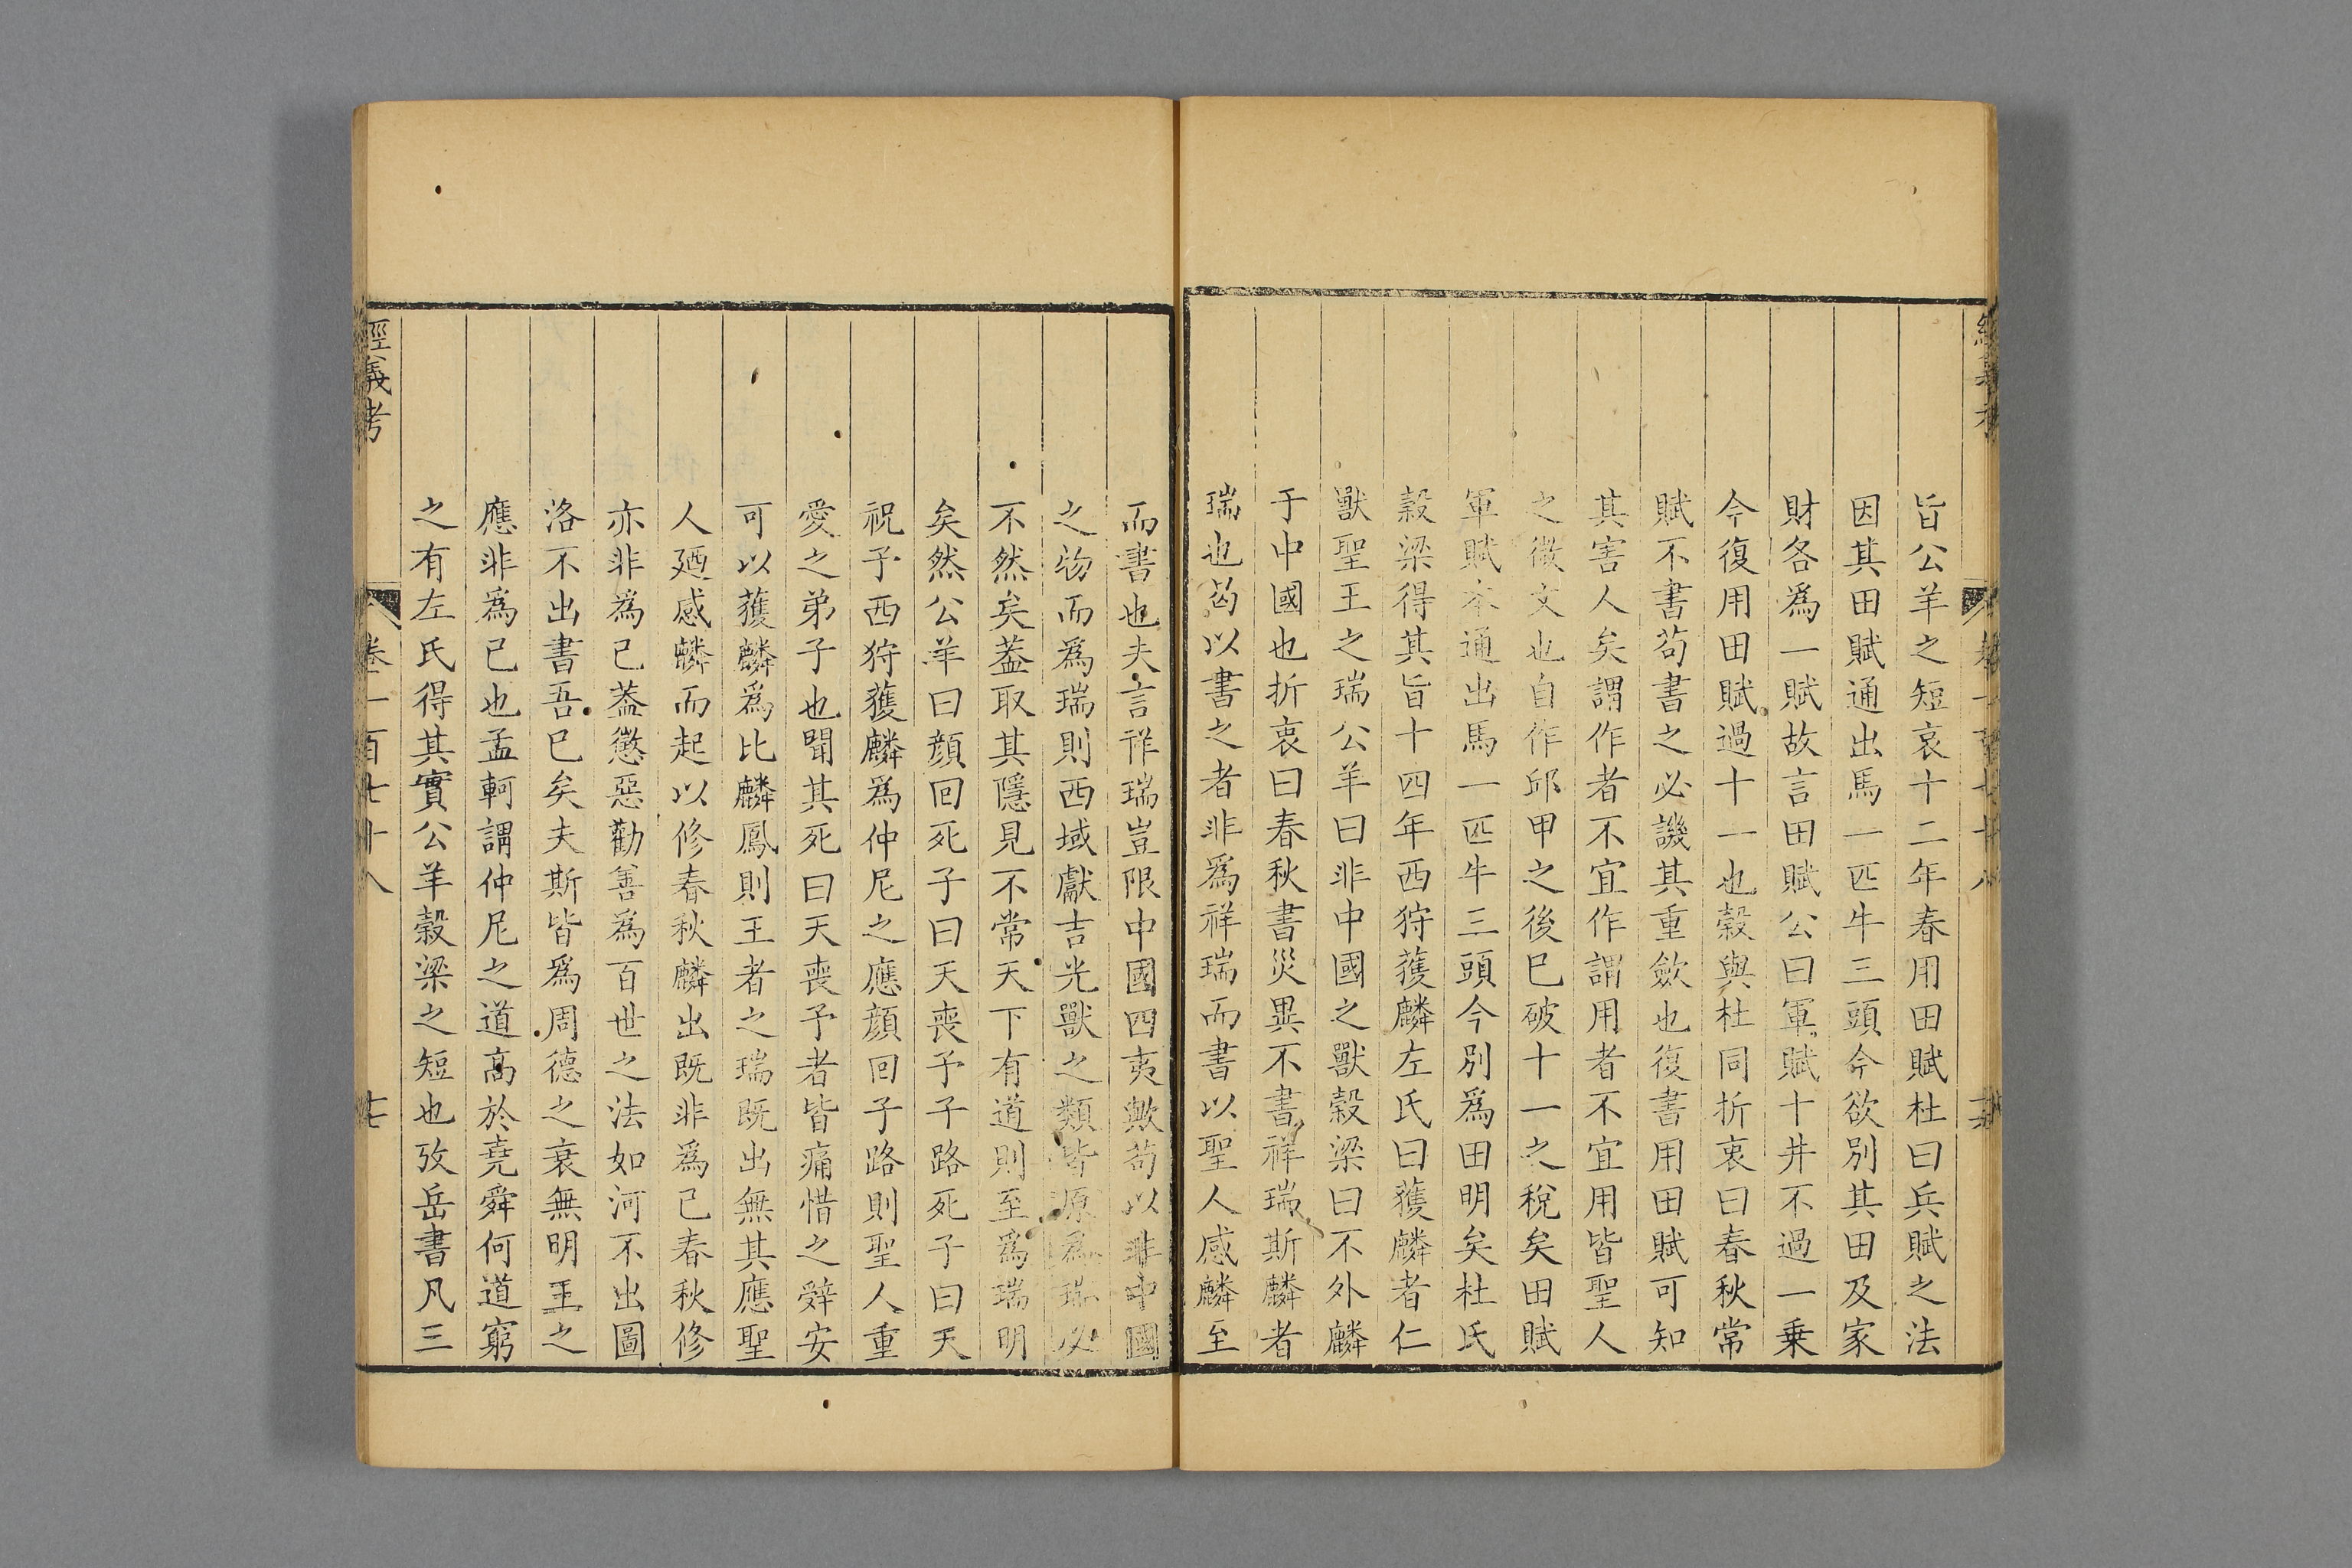 旨公羊之短哀十二年春用田賦杜曰兵賦之法
因其田賦通出馬一匹牛三頭今欲別其田及家
財各為一賦故言田賦公曰軍賦十井不過一乗
今復用田賦過十一也穀與杜同折衷曰春秋常
賦不書苟書之必譏其重斂也復書用田賦可知
其害人矣謂作者不宜作謂用者不宜用皆聖人
之微文也自作邱甲之後已破十一之稅矣田賦
軍賦本通出馬一匹牛三頭今別為田明矣杜氏
穀梁得其旨十四年西狩獲麟左氏曰獲麟者仁
獸聖王之瑞公羊曰非中國之獸穀梁曰不外麟
于中國也折衷曰春秋書災異不書祥瑞斯麟者
瑞也苟以書之者非為祥瑞而書以聖人感麟至
而書也夫言祥瑞豈限中國四夷歟苟以非中國
之物而為瑞則西域獻吉光獸之類皆原為瑞必
不然矣葢取其隱見不常天下有道則至為瑞明
矣然公羊曰顔回死子曰天喪予子路死子曰天
祝予西狩獲麟為仲尼之應顔回子路則聖人重
愛之弟子也聞其死曰天喪予者皆痛惜之辤安
可以獲麟為比麟鳳則王者之瑞既出無其應聖
人廼感麟而起以修春秋麟出既非為已春秋修
亦非為已葢懲惡勸善為百世之法如河不出圖
洛不出書吾已矣夫斯皆為周德之衰無明王之
應非為已也孟軻謂仲尼之道高於堯舜何道窮
之有左氏得其實公羊穀梁之短也攷岳書凡三
經義考
卷一百七十八
十七